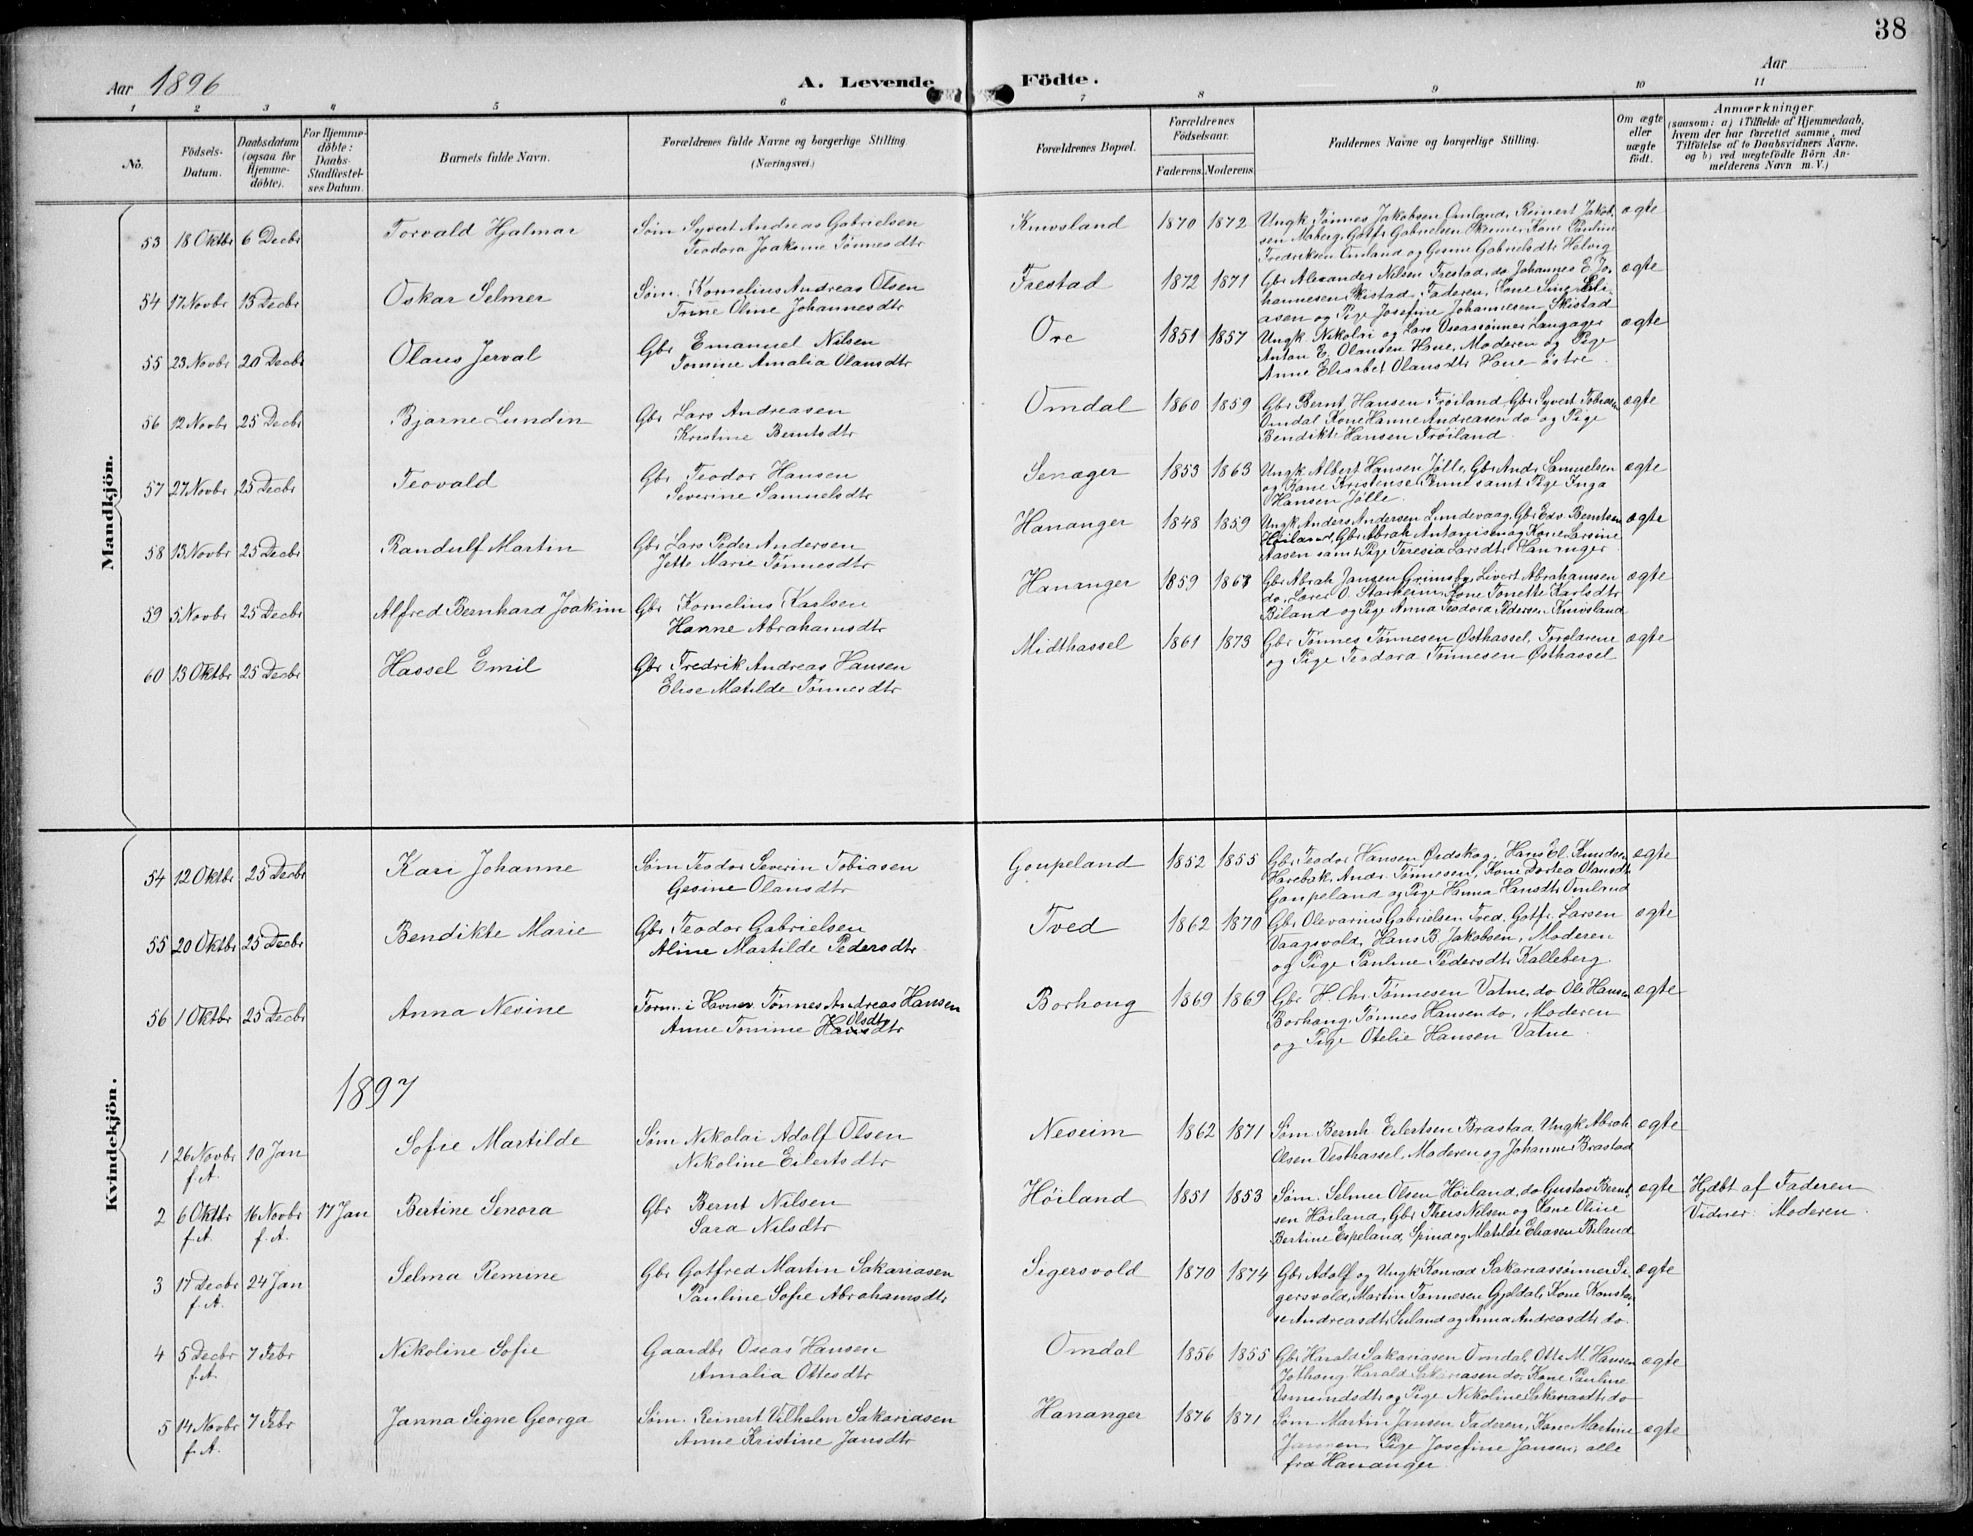 38
Aar 1896
A. Levende Födte.
Aar
1 2 3 4 5 6 7 8 9 10 11
No.
Födsels-Datum.
Daabsdatum (ogsaa for Hjemme-döbte).
For Hjemme-döbte: Daabs-Stadfæstel-ses Datum.
Barnets fulde Navn.
Forældrenes fulde Navne og borgerlige Stilling (Næringsvei.)
Forældrenes Bopæl.
Forældrenes Födselsaar.
Faderens Moderens
Faddernes Navne og borgerlige Stilling.
Om ægte eller uægte födt.
Anmærkninger (saasom: a) i Tilfælde af Hjemmedaab, hvem der har forrettet samme, med Tilföielse af to Daabsvidners Navne. og b) ved uægtefödte Börn An-melderens Navn m.V.)
Mandkjön.
53 18 Oktbr 6 Decbr Torvald Hjalmar Søm Syvert Andreas Gabrielsen Knivsland 1870 1872 Ungk. Tønnes Jakobsen Omland, Reinert Jakob- ægte
Teodora Joakime Tønnesdtr sen Maberg, Gotfr Gabrielsen Skeime, Kone Pauline
Fredriksen Omland og Gesine Gabrielsdtr Helvig
54 17 Novbr 13 Decbr Oskar Selmer Søm. Kornelius Andreas Olsen Frestad 1872 1871 Gbr Alexander Nilsen Frestad, do Johannes E. Jo- ægte
Trine Oline Johannesdtr hannesen Skistad, Faderen, Kone Sine
asen og Pige Josefine Johannesen Skistad
55 23 Novbr 20 Decbr Olaus Jerval Gbr Emanuel Nilsen Ore 1851 1857 Ungk Nikolai og Lars Oseassønner Langager ægte
Tomine Amalia Olausdtr Anton E. Olausen Hane, Moderen og Pige
Anne Elisabet Olausdtr Hane østre
56 12 Novbr 25 Decbr Bjarne Lundin Gbr Lars Andreasen Omdal 1860 1859 Gbr Bernt Hansen Trøiland Gbr Syvert Tobiasen ægte
Kristine Berntsdtr Omdal Kone Hanne Andreasen do og Pige
Bendikte Hansen Trøiland
57 27 Novbr 25 Decbr Teovald Gbr Teodor Hansen Senager 1853 1863 Ungk Albert Hansen Jølle, Gbr Andr. Samuelsen ægte
Severine Samuelsdtr og Kone Kristense Penne samt Pige Inga
Hansen Jølle
58 13 Novbr 25 Decbr Randulf Martin Gbr Lars Peder Andersen Hananger 1848 1859 Ungk Anders Andersen Lundevaag, Gbr Edv Berntsen ægte
Jette Marie Tønnesdtr Høiland, Gbr Abrah Antonisen og Kone Larsine
Aasen samt Pige Teresia Larsdtr Hananger
59 5 Novbr 25 Decbr Alfred Bernhard Joakim Gbr Kornelius Karlsen Hananger 1859 1867 Gbr Abrah Jansen Grimsby, Sivert Abrahamsen ægte
Hanne Abrahamsdtr do, Lærer O. Starheim, Kone Tonette Karlsdtr
Biland og Pige Anna Teodora Pedersen Knivsland
60 13 Oktbr 25 Decbr Hassel Emil Gbr Fredrik Andreas Hansen Midthassel 1861 1873 Gbr Tønnes Tønnesen Østhassel, Forældrene ægte
Elise Matilde Tønnesdtr og Pige Teodora Tønnesen Østhassel
Kvindekjön.
54 12 Oktbr 25 Decbr Kari Johanne Søm Teodor Severin Tobiasen Goupeland 1852 1855 Gbr Teodor Hansen Ordskog, Hans El. Knudsen ægte
Gesine Olausdtr Harebak, Andr. Tønnesen, Kone Dortea Olausdtr
Goupeland og Pige Hanna Hansdtr Omland
55 20 Oktbr 25 Decbr Bendikte Marie Gbr Teodor Gabrielsen Tved 1862 1870 Gbr Olevarius Gabrielsen Tved, Gotfr. Larsen ægte
Aline Martilde Pedersdtr Vaagsvold, Hans B Jakobsen, Moderen
og Pige Pauline Pedersdtr Kalleberg.
56 1 Oktbr 25 Decbr Anna Nesine Form. i Havnev. Tønnes Andreas Hansen Borhong 1869 1869 Gbr H. Chr. Tønnesen Vatne, do Ole Hansen ægte
Anne Tomine Hansdtr Olsdtr Borhang, Tønnes Hansen do, Moderen
og Pige Otelie Hansen Vatne
1897
1 26 Novbr f.A. 10 Jan Sofie Martilde Søm Nikolai Adolf Olsen Neseim 1862 1871 Søm Bernh Eilertsen Brastad, Ungk Abrah ægte
Nikoline Eilertsdtr Olsen Vesthassel, Moderen og Johanne Brastad
2 6 Oktbr f.A. 16 Novbr f.A. 17 Jan Bertine Senora Gbr Bernt Nilsen Høiland 1851 1853 Søm. Selmer Olsen Høiland, do Gustav Bernt- ægte Hjdbt af Faderen
Sara Nilsdtr sen Høiland, Gbr Thers Nilsen og Kone Oline Vidner: Moderen
Bertine Espeland, Spind og Matilde Eliasen Biland
3 17 Decbr f.A. 24 Jan Selma Remine Gbr Gotfred Martin Sakariasen Sigersvold 1870 1874 Gbr Adolf og Ungk Konrad Sakariassønner Si- ægte
Pauline Sofie Abrahamsdtr gersvold, Martin Tønnesen Gjeldal, Kone Konstan-
se Andreasdtr Seiland og Anna Andreasdtr do.
4 5 Decbr f.A. 7 Febr Nikoline Sofie Gaardbr Oseas Hansen Omdal 1856 1855 Gbr Harald Sakariasen Omdal, Otto M. Hansen ægte
Amalia Ottesdtr Jothong Harald Sakariasen do, Kone Pauline
Osmundsdtr og Pige Nikoline Sakariasdtr do
5 14 Novbr f.A. 7 Febr Janna Signe Georga Søm. Reinert Vilhelm Sakariasen Hananger 1876 1871 Søm Martin Jansen Faderen, Kone Martine ægte
Anne Kristine Jansdtr Jansen, Pige Josefine Jansen, alle
fra Hananger.